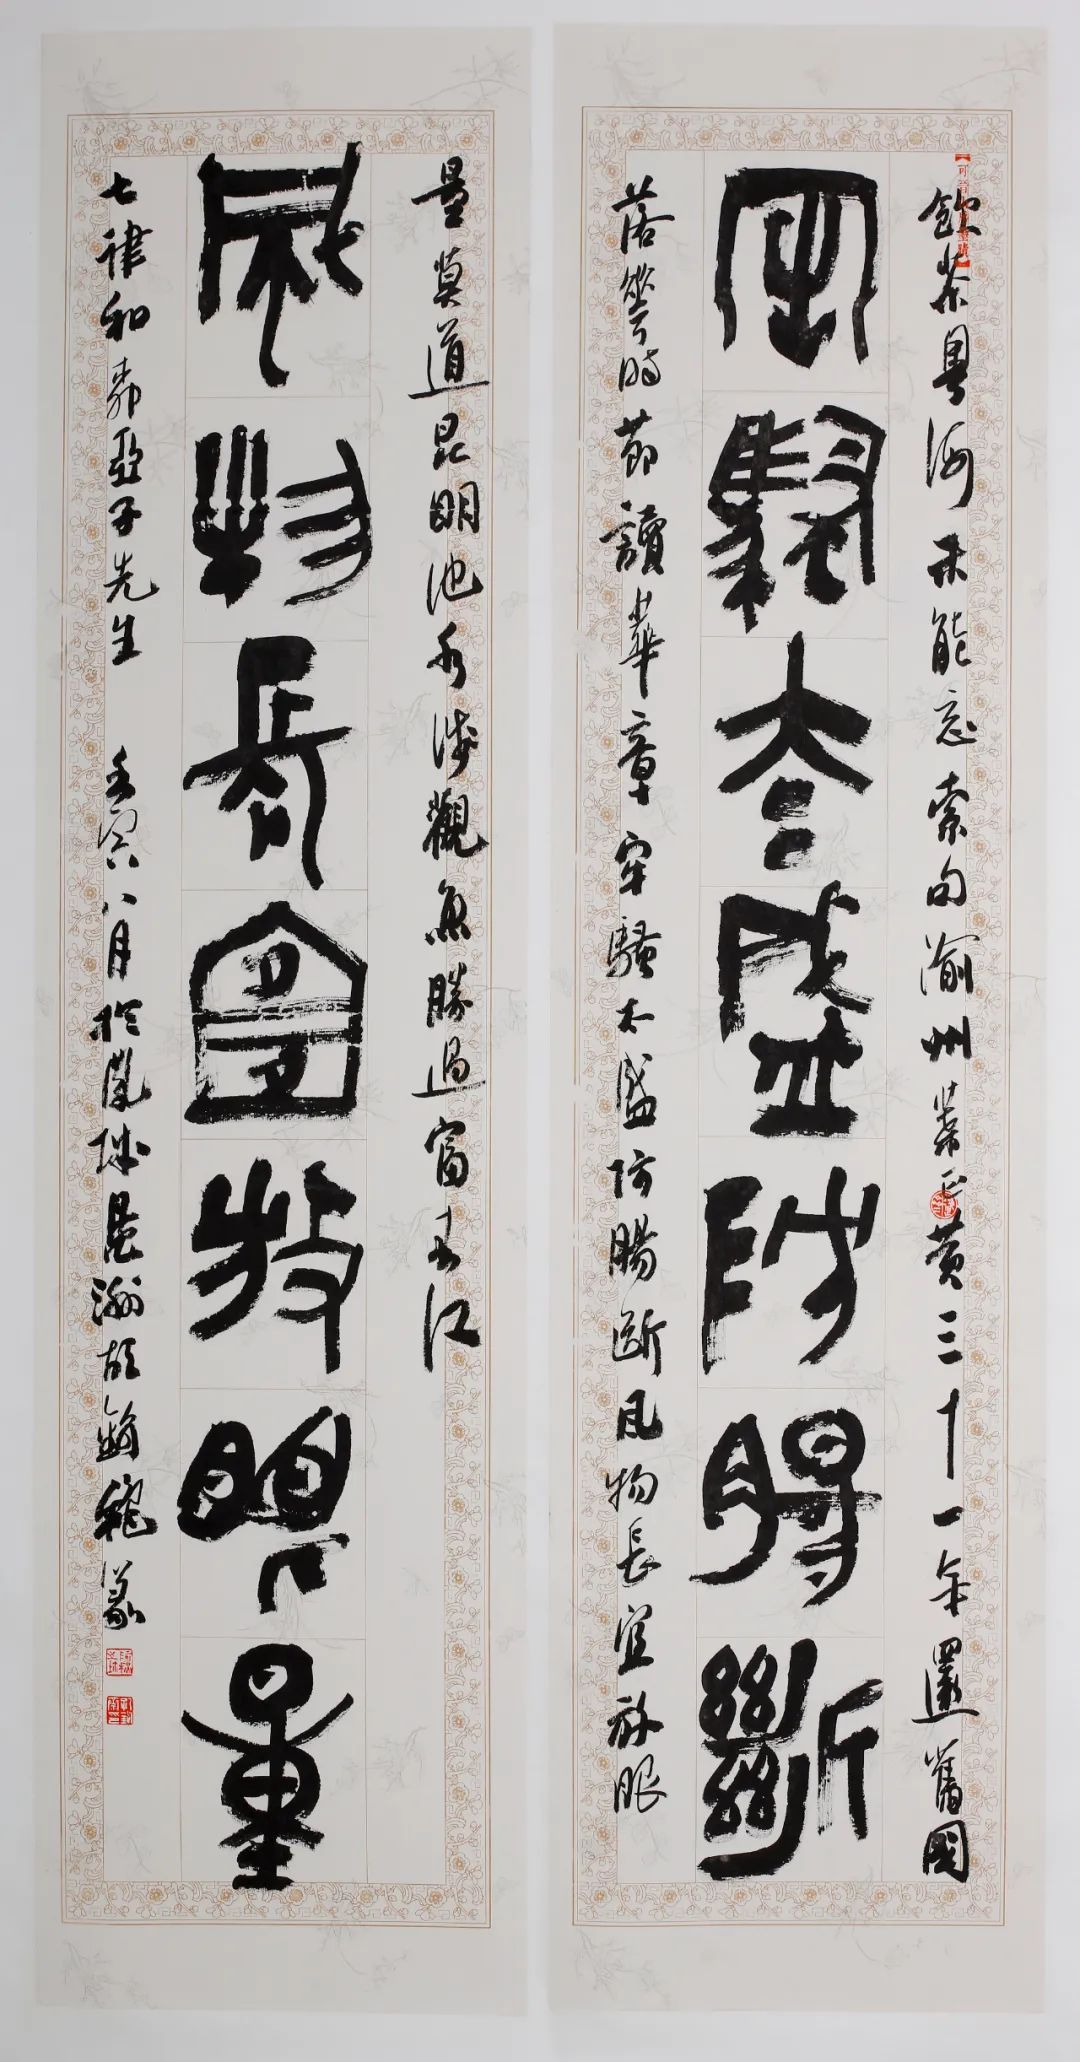 飲茶粵海未能忘索句渝州葉正黄三十一年還舊國
牢騷太盛防腸斷
落花時節讀華章牢騷太盛防腸斷風物長宜放眼
量莫道昆明池水淺觀魚勝過富春江
風物長宜放眼量
七律和柳亞子先生 壬寅八月於